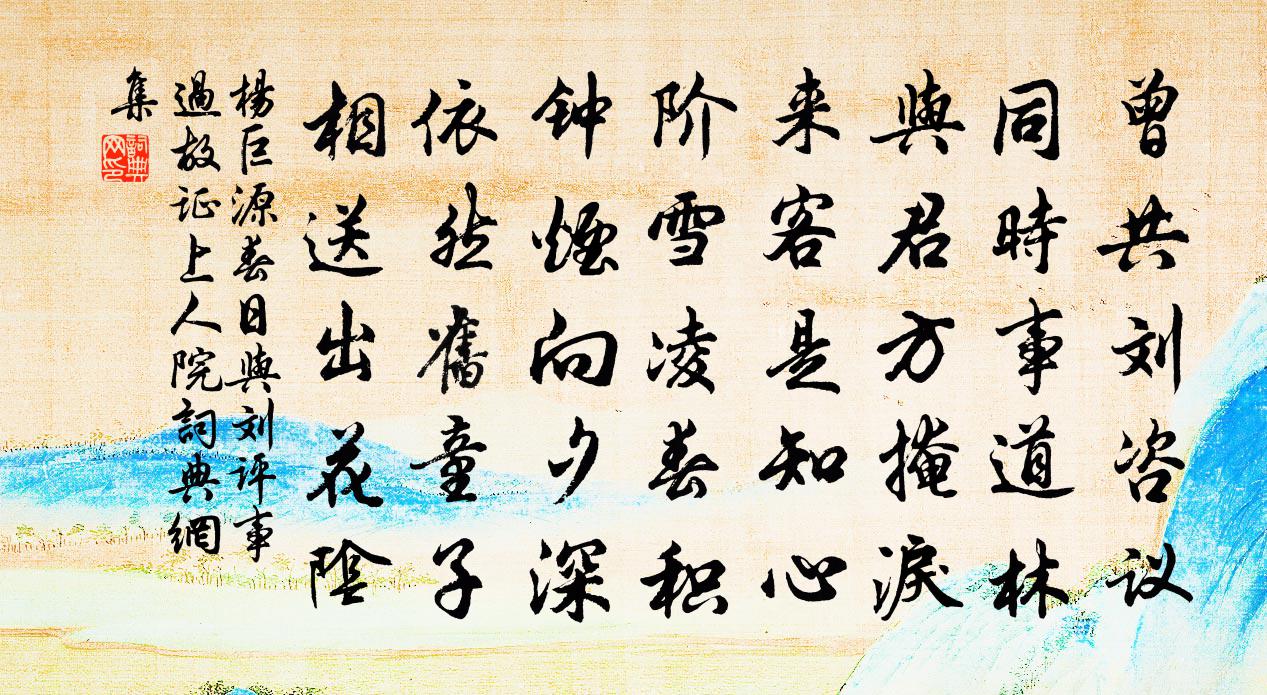 曾共刘咨议
同時事道林
與君方掩淚
来客是知心
阶雪凌春积
钟煙向夕深
依然舊童子
相送出花陰
楊巨源春日與刘评事
過故证上人院詞典網
集
詞典網印